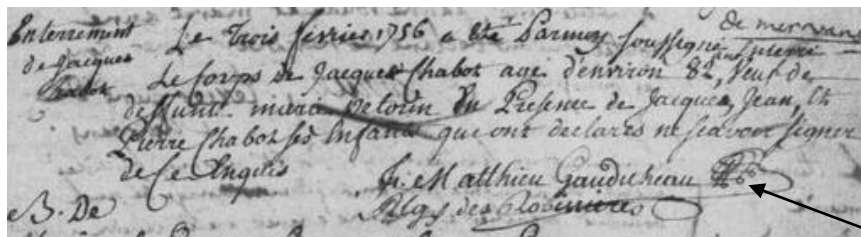 de mervant
Enterrement de Jacques Chabot
Le Trois fevrier 1756 a Eté Parmoy soussigné
Le Corps de Jacques Chabot agé d'environ 82 ans, Veuf de
deffunte marie Pelorin En Presence de Jacques, Jean, Et
Pierre Chabot ses Enfants que ont declarés ne sçavoir signer
de Ce Enquis
fr. Matthieu Gaudicheau
Rlgx des Robinieres
B. De